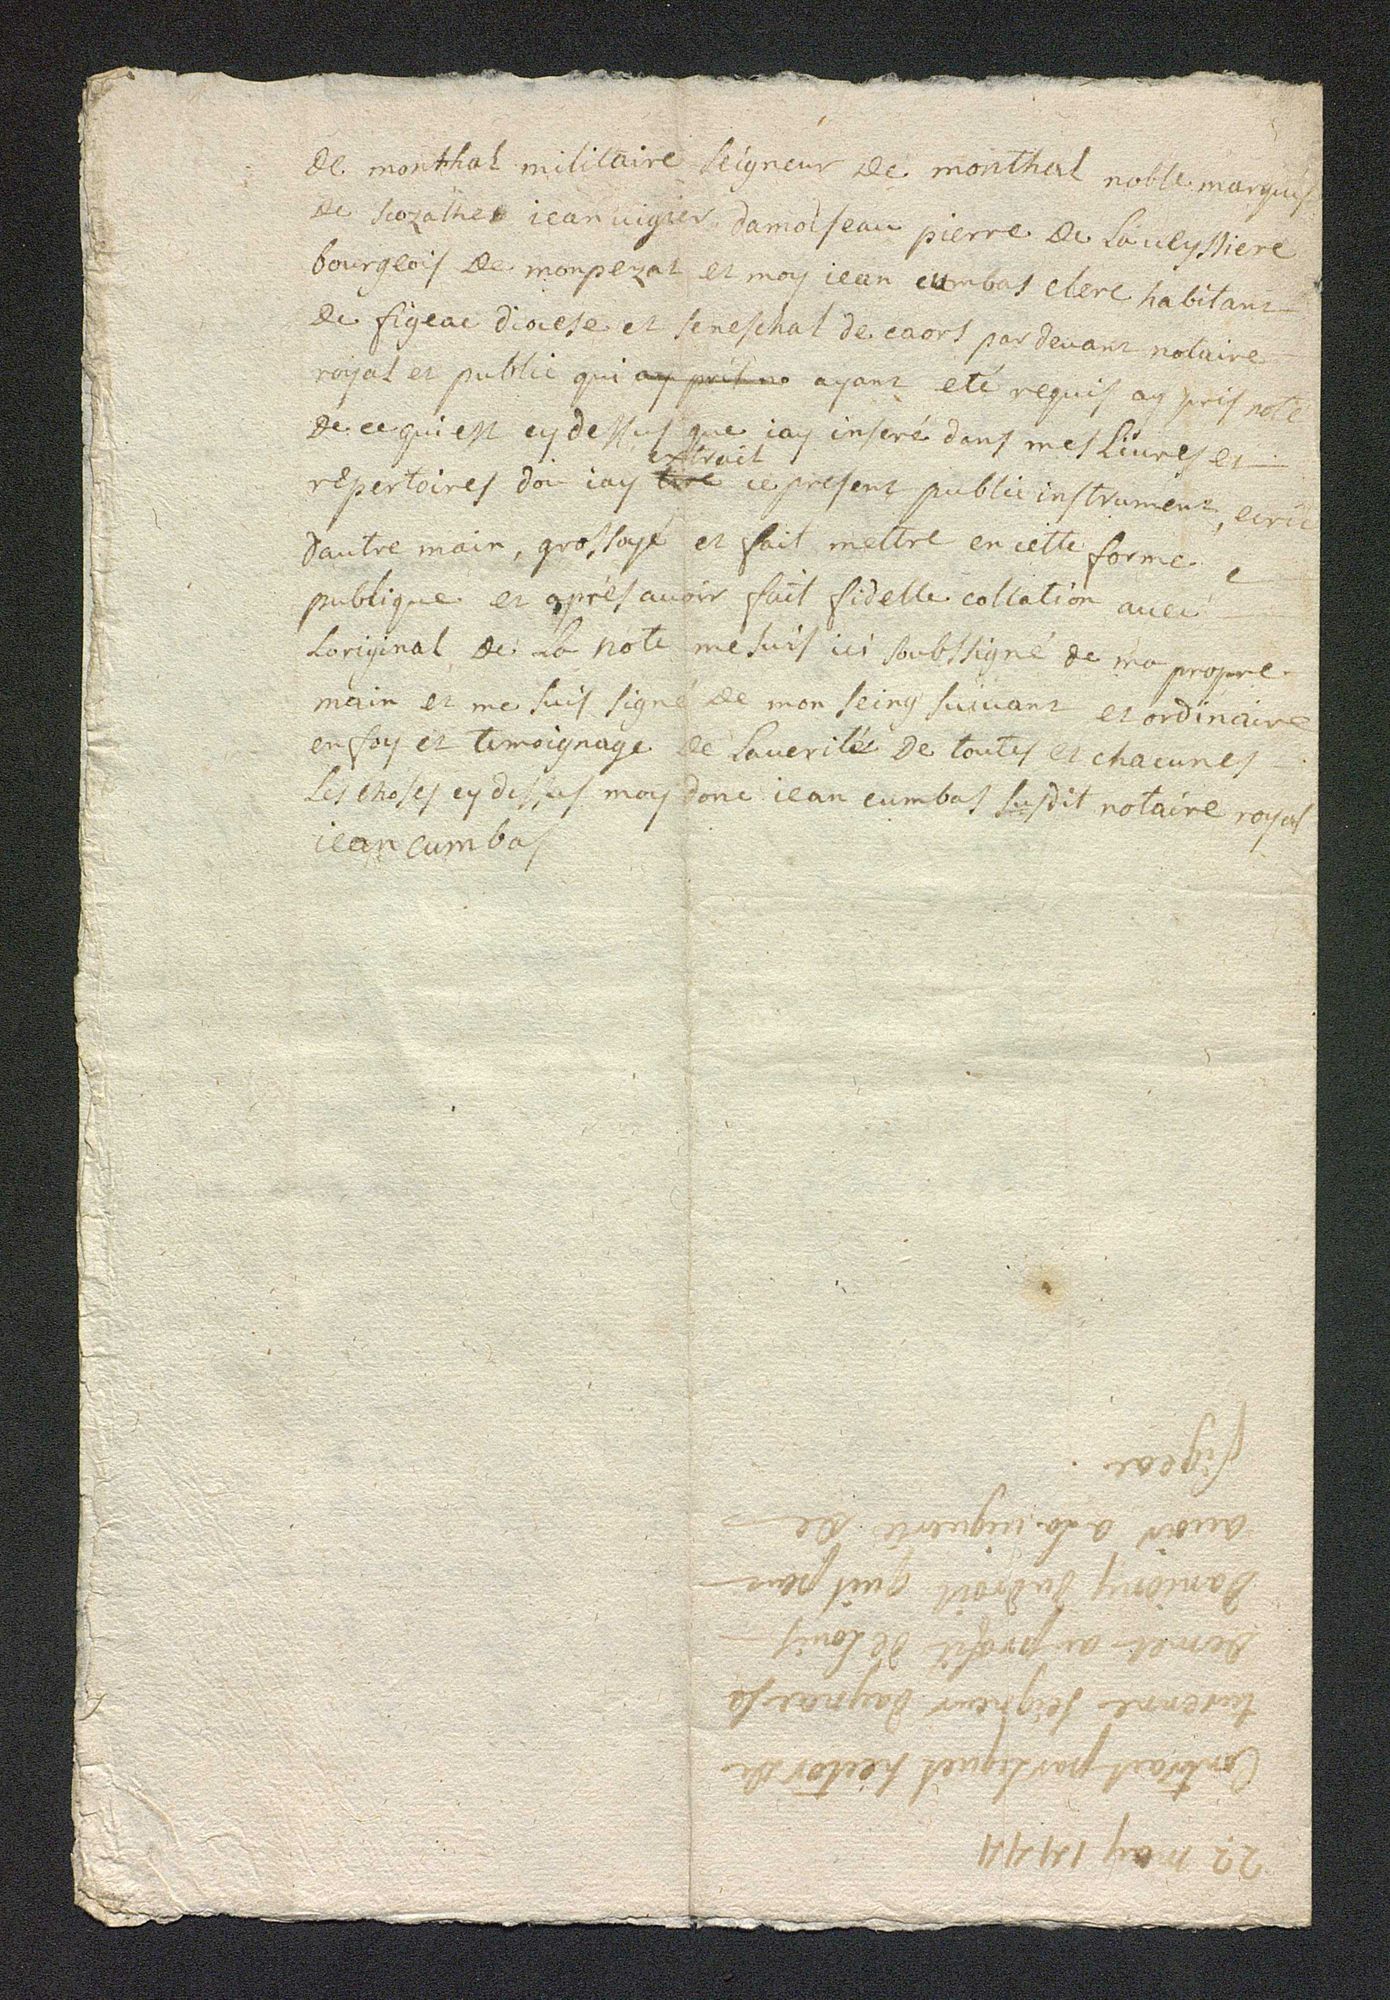 de monthal militaire seigneur de monthal noble marquis
de jean vigier damoiseau pierre de Lauleyssiere
bourgeois de monpezat et moy iean cumbas clerc habitant
de figeac diocese et seneschal de caors par devant notaire
royal et public qui ay pris no ayant eté requis ay pris note
de ce qui est cy dessus que iay inseré dans mes Livres et
repertoires doù iay tiré extrait ce present public instrument, ecrit
dautre main, grossoyé et fait mettre en cette forme
publique et aprés avoir fait fidelle collation avec
Loriginal de La note me suis ici soubssigné de ma propre
main et me suis signé de mon seing suivant et ordinaire
en foy et temoignage de Laverité de toutes et chacunes
Les choses cy dessus moy donc iean cumbas susdit notaire royal
iean cumbas
22 may 1444
Contract par lequel hector de
turenne seigneur daynac se
demet au profit de Louis
du droit quil peut
avoir a la viguerie de
figeac